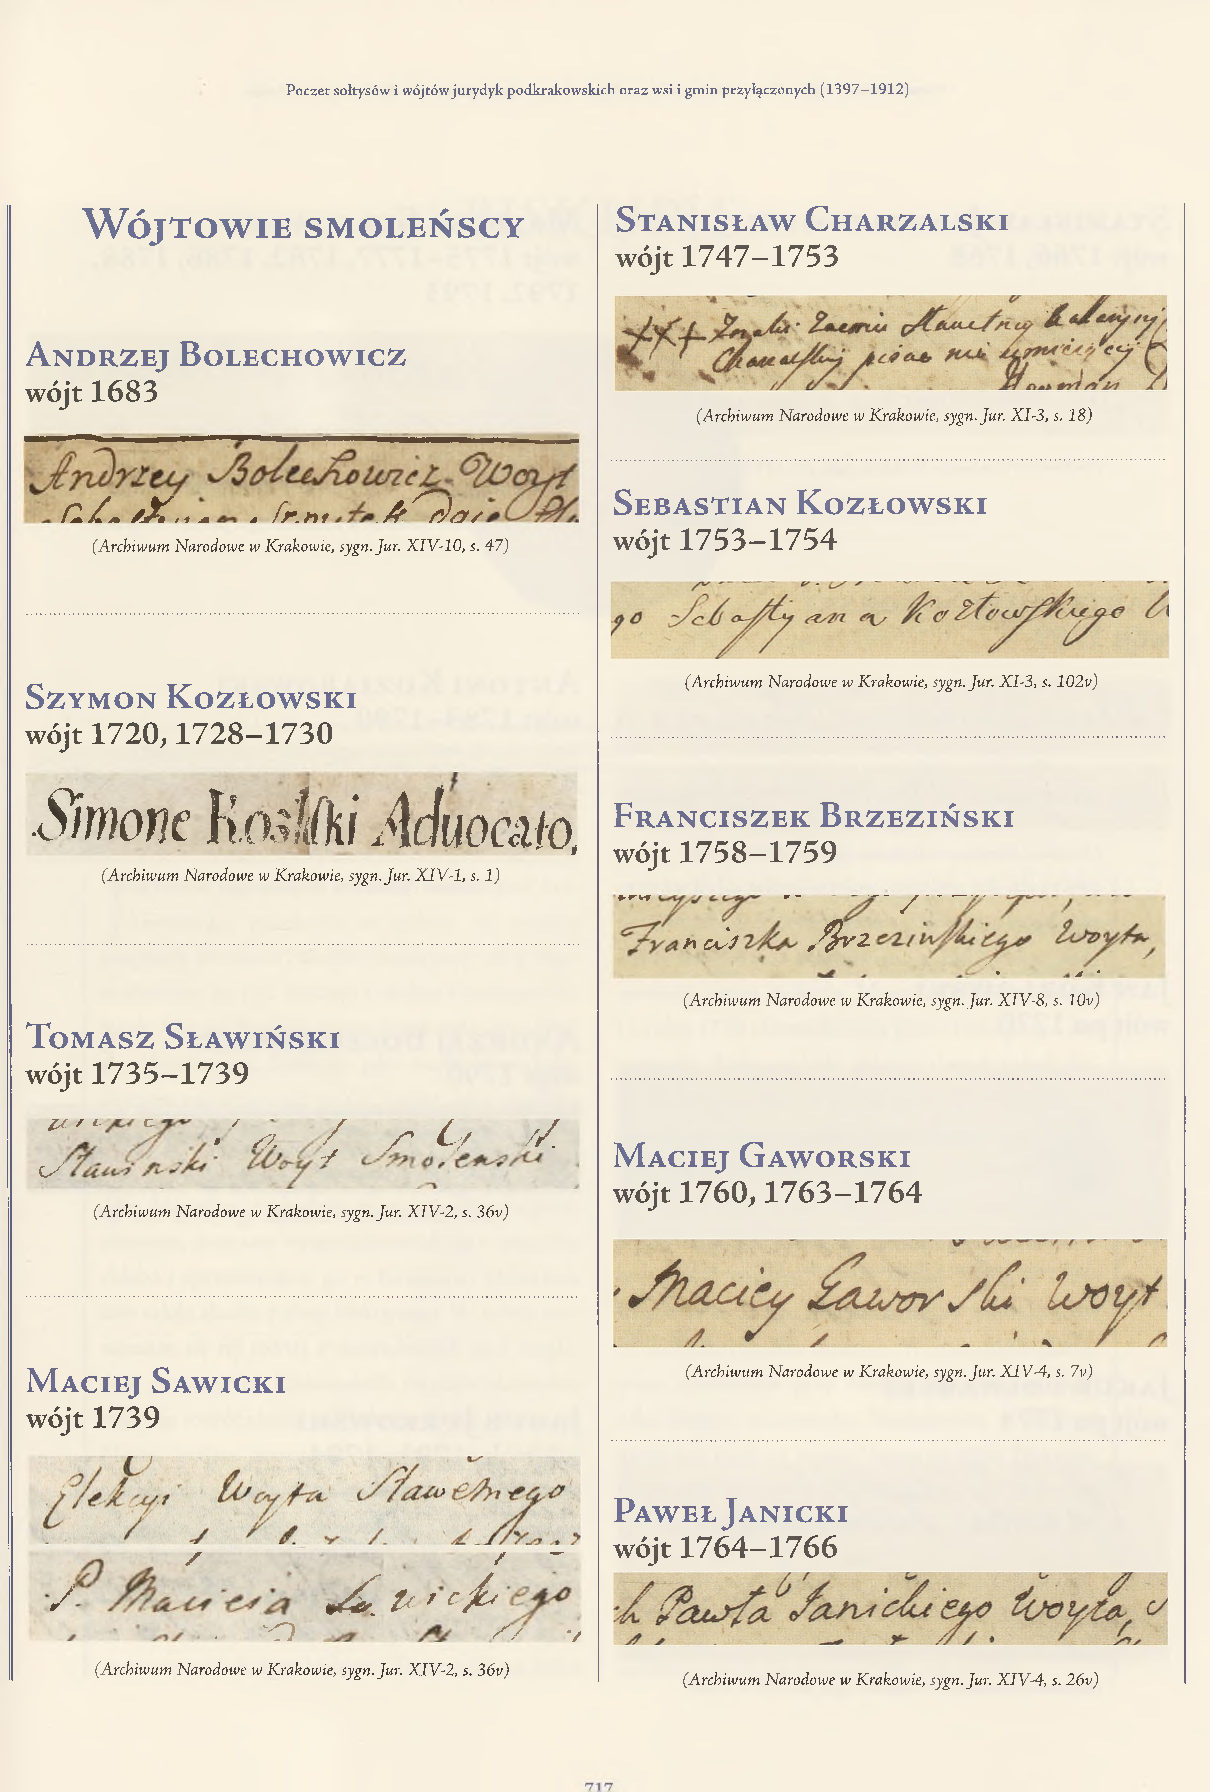 Poczet sołtysów i wójtów jurydyk podkrakowskich oraz wsi i gmin przyłączonych (1397–1912)
Wójtowie smoleńscy
Andrzej Bolechowicz
wójt 1683
Andrzey Bolechowicz Woyt
(Archiwum Narodowe w Krakowie, sygn. Jur. XIV-10, s. 47)
Szymon Kozłowski
wójt 1720, 1728–1730
Simone Aduocato,
(Archiwum Narodowe w Krakowie, sygn. Jur. XIV-1, s. 1)
Tomasz Sławiński
wójt 1735–1739
Sławinski Woyt Smolenski
(Archiwum Narodowe w Krakowie, sygn. Jur. XIV-2, s. 36v)
Maciej Sawicki
wójt 1739
Elekcyi Woyta Sławetnego
P. Macieia Sawickiego
(Archiwum Narodowe w Krakowie, sygn. Jur. XIV-2, s. 36v)
Stanisław Charzalski
wójt 1747–1753
pisac nie umieiący
(Archiwum Narodowe w Krakowie, sygn. Jur. XI-3, s. 18)
Sebastian Kozłowski
wójt 1753–1754
go Sebastyana Kozłowskiego
(Archiwum Narodowe w Krakowie, sygn. Jur. XI-3, s. 102v)
Franciszek Brzeziński
wójt 1758–1759
Franciszka Brzezinskiego Woyta,
(Archiwum Narodowe w Krakowie, sygn. Jur. XIV-8, s. 10v)
Maciej Gaworski
wójt 1760, 1763–1764
Maciey Gaworski Woyt
(Archiwum Narodowe w Krakowie, sygn. Jur. XIV-4, s. 7v)
Paweł Janicki
wójt 1764–1766
ch Pawła Janickiego Woyta,
(Archiwum Narodowe w Krakowie, sygn. Jur. XIV-4, s. 26v)
717